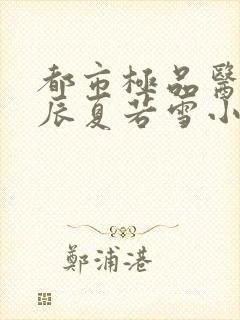 都市極品醫
辰夏若雪小
鄭浦港